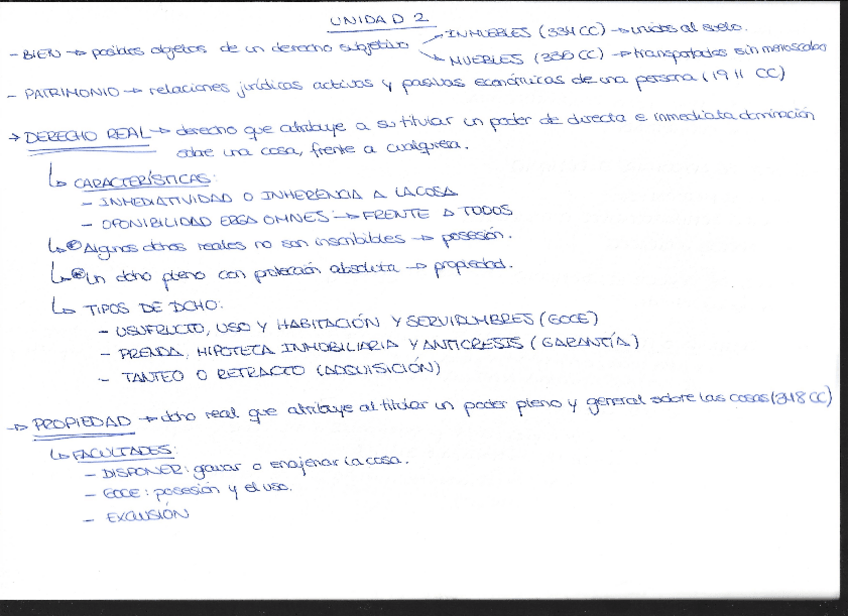 UNIDAD 2
- BIEN → posibles objetos de un derecho subjetivo
INMUEBLES (334 CC) → unidos al suelo.
MUEBLES (335 CC) → transportados sin menoscabo
- PATRIMONIO → relaciones jurídicas activas y pasivas económicas de una persona (1911 CC)
→ DERECHO REAL → derecho que atribuye a su titular un poder de directa e inmediata dominación
sobre una cosa, frente a cualquiera.
↳ CARACTERÍSTICAS:
- INMEDIATIVIDAD O INHERENCIA A LA COSA
- OPONIBILIDAD ERGA OMNES → FRENTE A TODOS
↳ Algunos dchos reales no son inscribibles → posesión.
↳ Un dcho pleno con protección absoluta → propiedad.
↳ TIPOS DE DCHO:
- USUFRUCTO, USO Y HABITACIÓN Y SERVIDUMBRES (GOCE)
- PRENDA, HIPOTECA INMOBILIARIA Y ANTICRESIS (GARANTÍA)
- TANTEO O RETRACTO (ADQUISICIÓN)
→ PROPIEDAD → dcho real que atribuye al titular un poder pleno y general sobre las cosas (348 CC)
↳ FACULTADES:
- DISPONER: gravar o enajenar la cosa.
- GOCE: posesión y el uso.
- EXCLUSIÓN